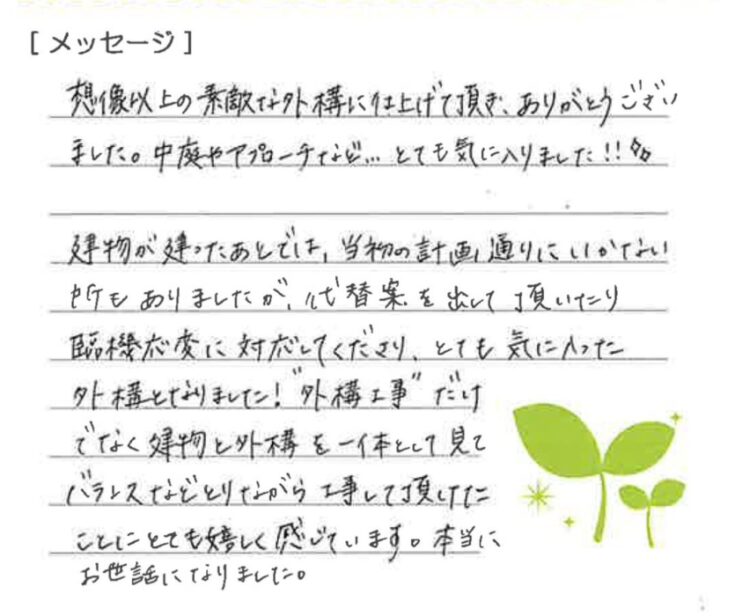 [メッセージ]
想像以上の素敵な外構に仕上げて頂き、ありがとうござい
ました。中庭やアプローチなど… とても気に入りました!!
建物が建ったあとでは、当初の計画通りにいかない
所もありましたが、代替案を出して頂いたり
臨機応変に対応してくださり、とても気に入った
外構となりました!"外構工事"だけ
でなく建物と外構を一体として見て
バランスなどとりながら工事して頂けた
ことにとても嬉しく感じています。本当に
お世話になりました。